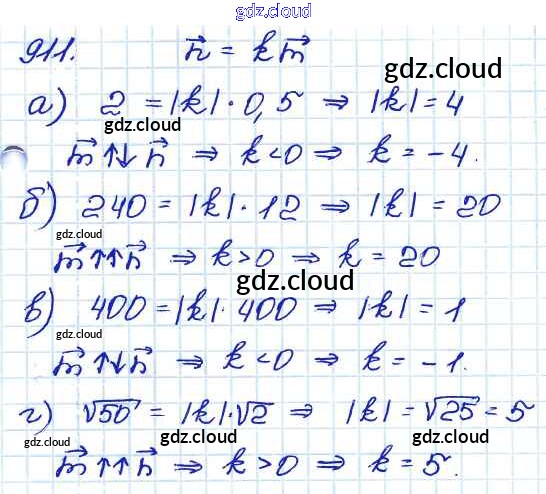 gdz.cloud
911. n⃗ = k m⃗
gdz.cloud
а) 2 = |k| · 0,5 ⇒ |k| = 4
gdz.cloud
gdz.cloud
m⃗ ↑↓ n⃗ ⇒ k < 0 ⇒ k = -4.
б) 240 = |k| · 12 ⇒ |k| = 20
gdz.cloud
m⃗ ↑↑ n⃗ ⇒ k > 0 ⇒ k = 20
gdz.cloud
в) 400 = |k| · 400 ⇒ |k| = 1
gdz.cloud
gdz.cloud
m⃗ ↑↓ n⃗ ⇒ k < 0 ⇒ k = -1.
г) √50 = |k| · √2 ⇒ |k| = √25 = 5
gdz.cloud
gdz.cloud
gdz.cloud
m⃗ ↑↑ n⃗ ⇒ k > 0 ⇒ k = 5.
gdz.cloud